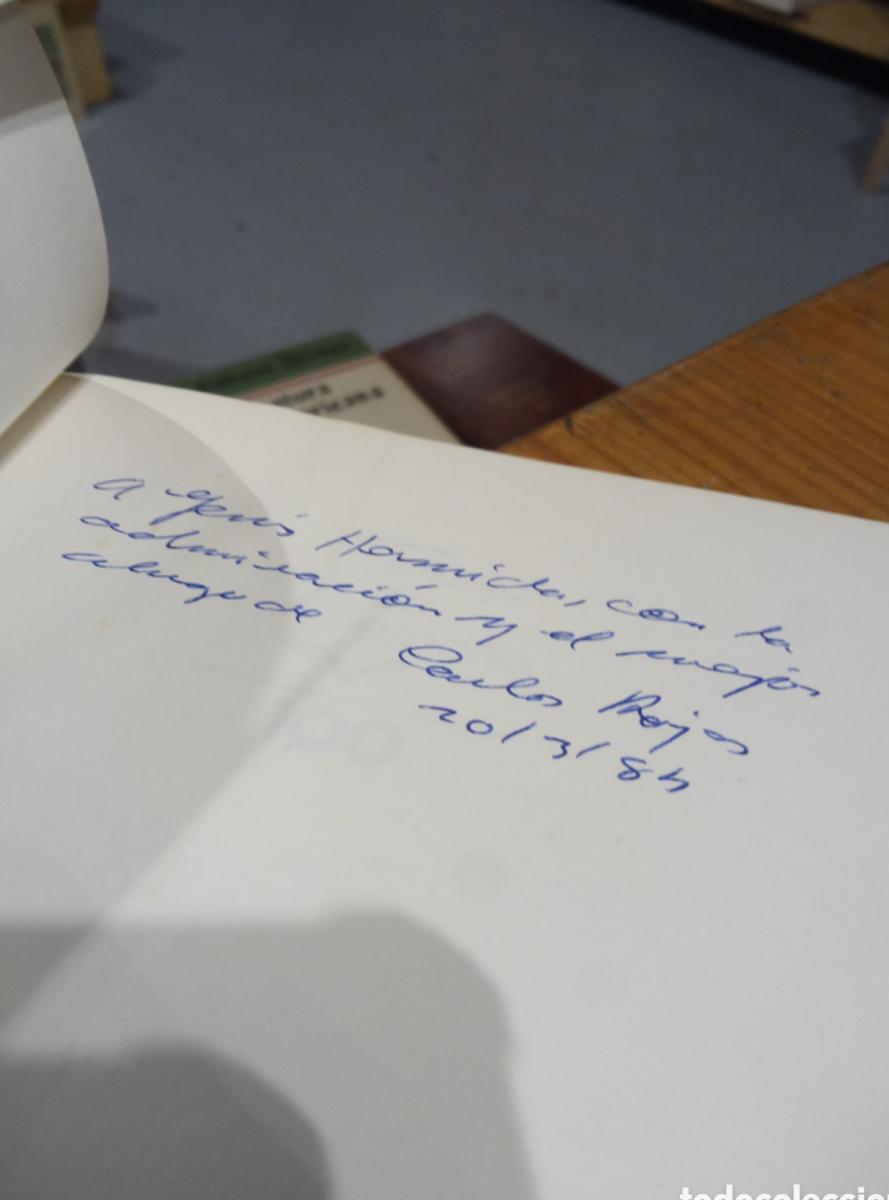 A Jesús Hermida, con la
admiración y el mejor
abrazo de
Carlos Rojas
20/3/84
todocoleccion